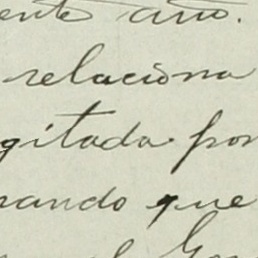 ente año.
relaciona
gitada por
nando que